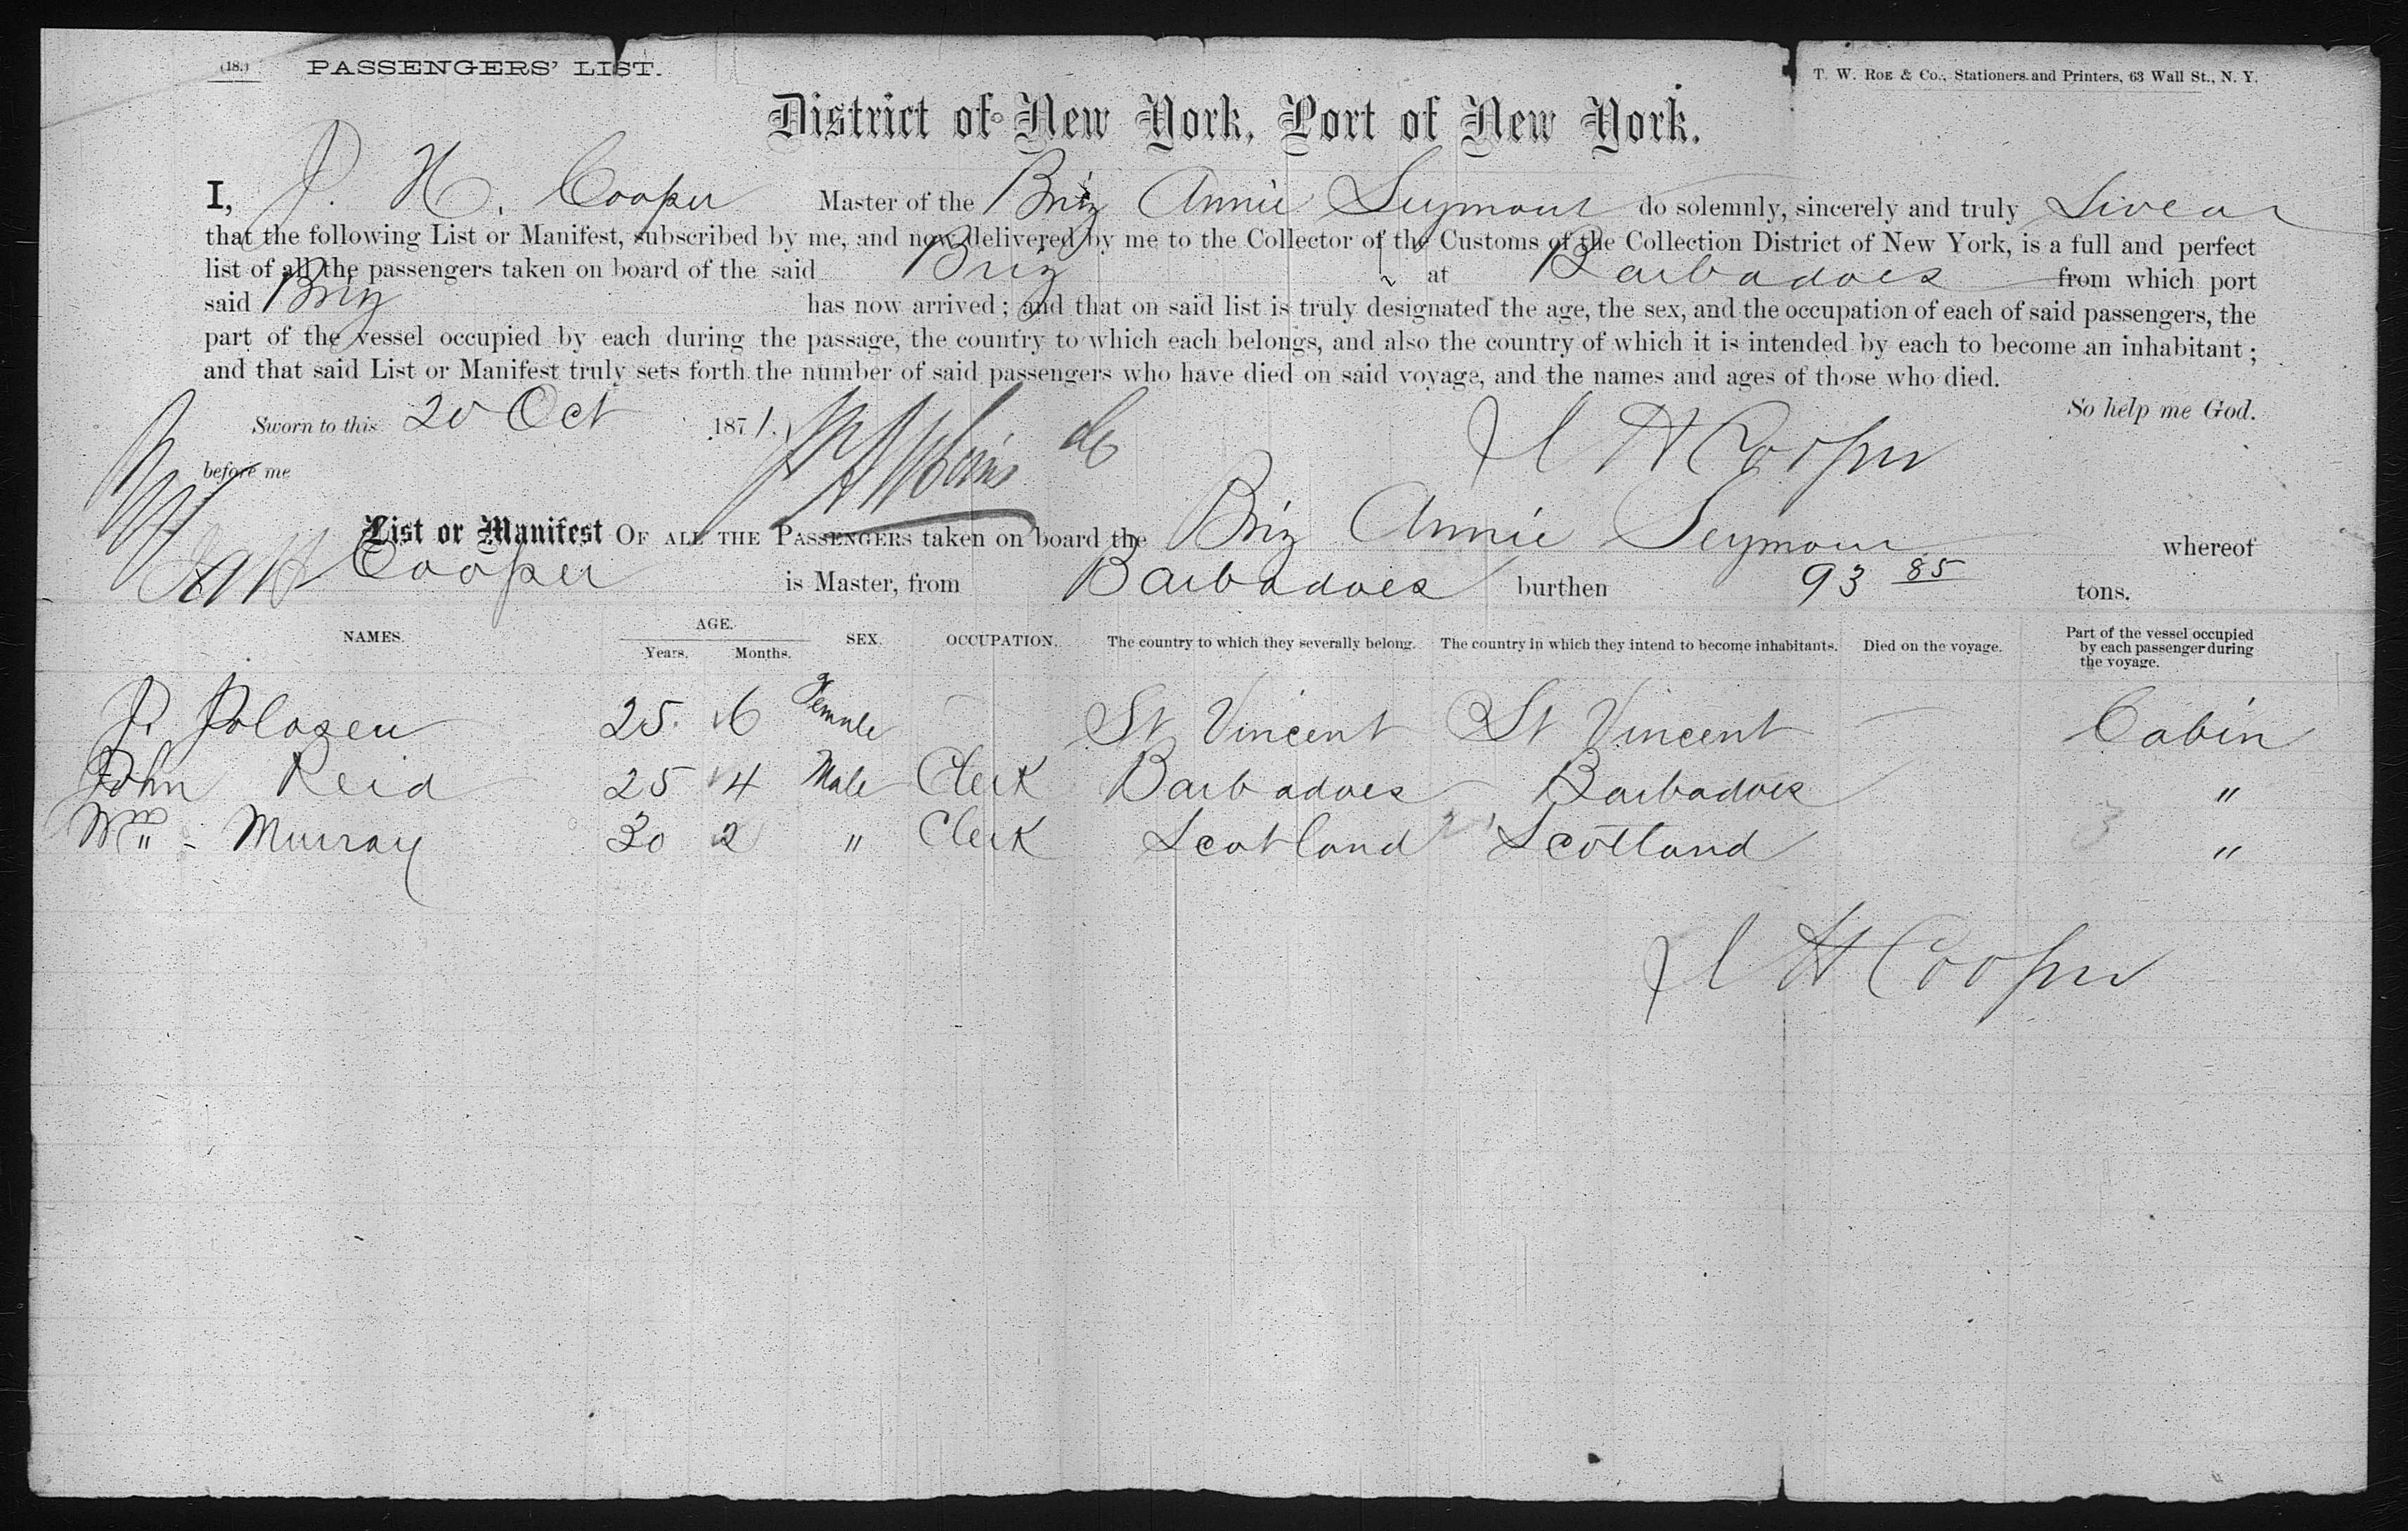 (18.) PASSENGERS' LIST. T. W. Roe & Co., Stationers and Printers, 63 Wall St., N. Y.
District of New York, Port of New York.
I, J. H. Cooper Master of the Brig Annie Seymour do solemnly, sincerely and truly Swear
that the following List or Manifest, subscribed by me, and now delivered by me to the Collector of the Customs of the Collection District of New York, is a full and perfect
list of all the passengers taken on board of the said Brig at Barbadoes from which port
said Brig has now arrived; and that on said list is truly designated the age, the sex, and the occupation of each of said passengers, the
part of the vessel occupied by each during the passage, the country to which each belongs, and also the country of which it is intended by each to become an inhabitant;
and that said List or Manifest truly sets forth the number of said passengers who have died on said voyage, and the names and ages of those who died.
So help me God.
Sworn to this 20 Oct 1871. J H Cooper
before me
List or Manifest OF ALL THE PASSENGERS taken on board the Brig Annie Seymour whereof
Cooper is Master, from Barbadoes burthen 93 85 tons.
NAMES. AGE. Years. Months. SEX. OCCUPATION. The country to which they severally belong. The country in which they intend to become inhabitants. Died on the voyage. Part of the vessel occupied by each passenger during the voyage.
25 6 Female St Vincent St Vincent Cabin
John Reid 25 4 Male Clerk Barbadoes Barbadoes "
Wm Murray 30 2 " Clerk Scotland Scotland 3 "
J H Cooper